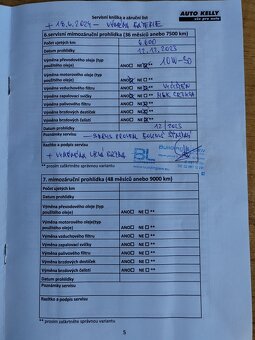 Servisní knížka a záruční list
AUTO KELLY
Vše pro auto
+ 18.4.2024 - VÝMĚNA BATERIE
6.servisní mimozáruční prohlídka (36 měsíců anebo 7500 km)
Počet ujetých km:
Datum prohlídky 12.12.2023
Výměna převodového oleje (typ použitého oleje) ANO NE ** 10W-50
Výměna motorového oleje (typ použitého oleje) ANO NE **
Výměna vzduchového filtru ANO NE **
Výměna zapalovací svíčky ANO NE **
Výměna palivového filtru ANO NE **
Výměna brzdových destiček ANO NE **
Výměna brzdových čelistí ANO NE **
Datum prohlídky 12/2023
Poznámky servisu
Razítko a podpis servisu
** prosím zaškrtněte správnou variantu
7. mimozáruční prohlídka (48 měsíců anebo 9000 km)
Počet ujetých km:
Datum prohlídky
Výměna převodového oleje(typ použitého oleje) ANO NE **
Výměna motorového oleje(typ použitého oleje) ANO NE **
Výměna vzduchového filtru ANO NE **
Výměna zapalovací svíčky ANO NE **
Výměna palivového filtru ANO NE **
Výměna brzdových destiček ANO NE **
Výměna brzdových čelistí ANO NE **
Poznámky servisu
Razítko a podpis servisu
** prosím zaškrtněte správnou variantu
5